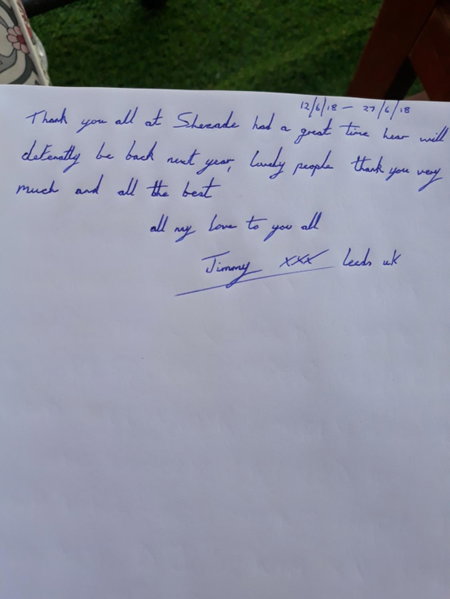 12/6/18 - 27/6/18
Thank you all at Sherade had a great time hear will
defenatly be back next year, lovely people thank you very
much and all the best
all my love to you all
Jimmy xxx Leeds uk